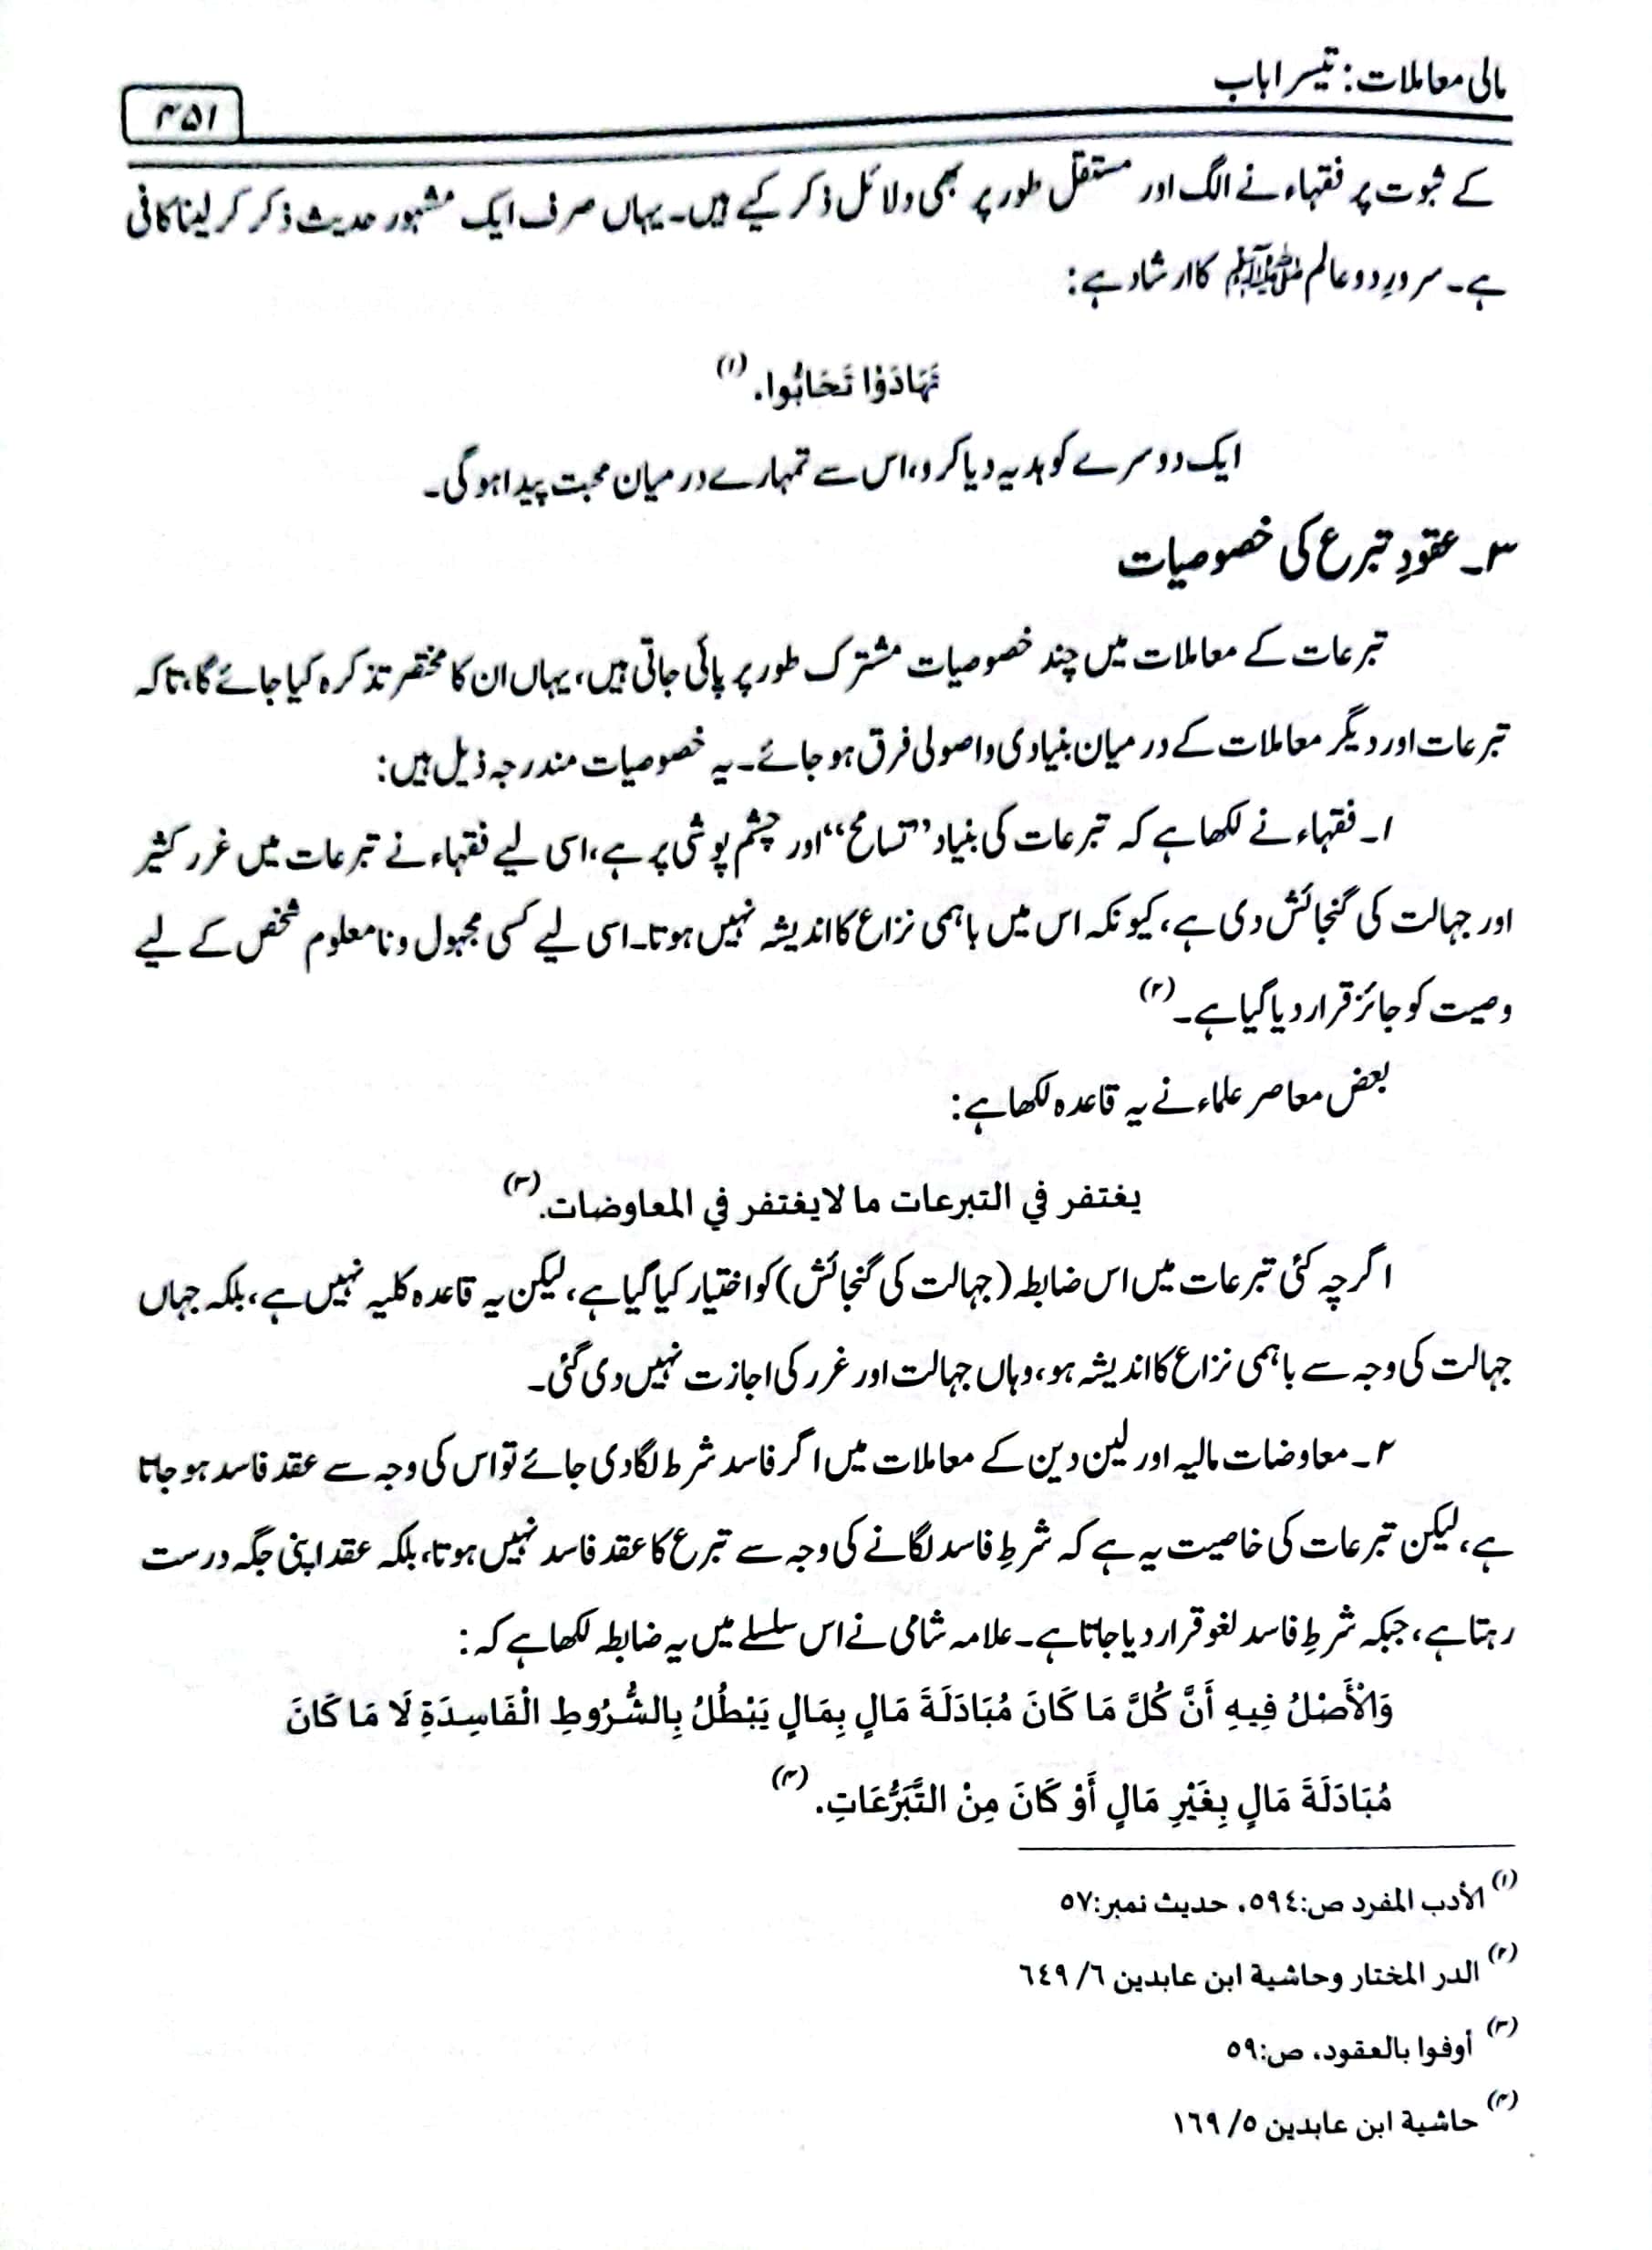 مالی معاملات: تیسرا باب
۴۵۱
کے ثبوت پر فقہاء نے الگ اور مستقل طور پر بھی دلائل ذکر کیے ہیں۔ یہاں صرف ایک مشہور حدیث ذکر کر لینا کافی
ہے۔ سرورِ دو عالم ﷺ کا ارشاد ہے:
تَهَادَوْا تَحَابُّوا. (۱)
ایک دوسرے کو ہدیہ دیا کرو، اس سے تمہارے درمیان محبت پیدا ہو گی۔
۳۔ عقودِ تبرع کی خصوصیات
تبرعات کے معاملات میں چند خصوصیات مشترک طور پر پائی جاتی ہیں، یہاں ان کا مختصر تذکرہ کیا جائے گا، تاکہ
تبرعات اور دیگر معاملات کے درمیان بنیادی و اصولی فرق ہو جائے۔ یہ خصوصیات مندرجہ ذیل ہیں:
۱۔ فقہاء نے لکھا ہے کہ تبرعات کی بنیاد ”تسامح“ اور چشم پوشی پر ہے، اسی لیے فقہاء نے تبرعات میں غرر کثیر
اور جہالت کی گنجائش دی ہے، کیونکہ اس میں باہمی نزاع کا اندیشہ نہیں ہوتا۔ اسی لیے کسی مجہول و نامعلوم شخص کے لیے
وصیت کو جائز قرار دیا گیا ہے۔ (۲)
بعض معاصر علماء نے یہ قاعدہ لکھا ہے:
يغتفر في التبرعات ما لا يغتفر في المعاوضات. (۳)
اگرچہ کئی تبرعات میں اس ضابطہ (جہالت کی گنجائش) کو اختیار کیا گیا ہے، لیکن یہ قاعدہ کلیہ نہیں ہے، بلکہ جہاں
جہالت کی وجہ سے باہمی نزاع کا اندیشہ ہو، وہاں جہالت اور غرر کی اجازت نہیں دی گئی۔
۲۔ معاوضات مالیہ اور لین دین کے معاملات میں اگر فاسد شرط لگا دی جائے تو اس کی وجہ سے عقد فاسد ہو جاتا
ہے، لیکن تبرعات کی خاصیت یہ ہے کہ شرطِ فاسد لگانے کی وجہ سے تبرع کا عقد فاسد نہیں ہوتا، بلکہ عقد اپنی جگہ درست
رہتا ہے، جبکہ شرطِ فاسد لغو قرار دیا جاتا ہے۔ علامہ شامی نے اس سلسلے میں یہ ضابطہ لکھا ہے کہ:
وَالْأَصْلُ فِيهِ أَنَّ كُلَّ مَا كَانَ مُبَادَلَةَ مَالٍ بِمَالٍ يَبْطُلُ بِالشُّرُوطِ الْفَاسِدَةِ لَا مَا كَانَ
مُبَادَلَةَ مَالٍ بِغَيْرِ مَالٍ أَوْ كَانَ مِنْ التَّبَرُّعَاتِ. (۴)
(۱) الأدب المفرد ص:٥٩٤، حديث نمبر:٥٧
(۲) الدر المختار وحاشية ابن عابدين ٦/ ٦٤٩
(۳) أوفوا بالعقود، ص:٥٩
(۴) حاشية ابن عابدين ٥/ ١٦٩